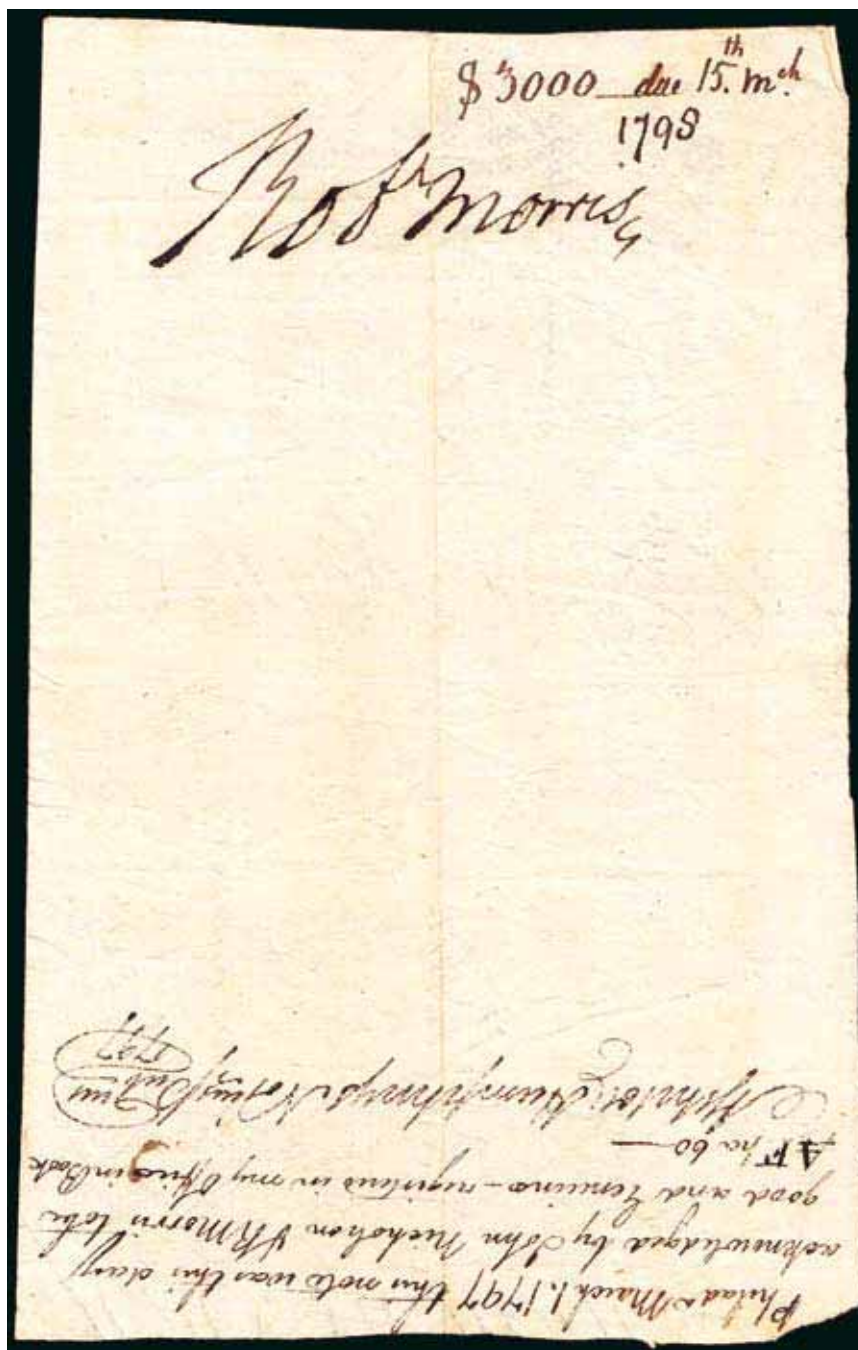 $3000 due 15.th mch.
1798
Robt Morris
Philada March 1. 1797 this note was this day
acknowledged by John Nicholson & R Morris to be
good and Genuine - registered in my Office in Book
AF No. 60
Humphreys Notary Pub
1797